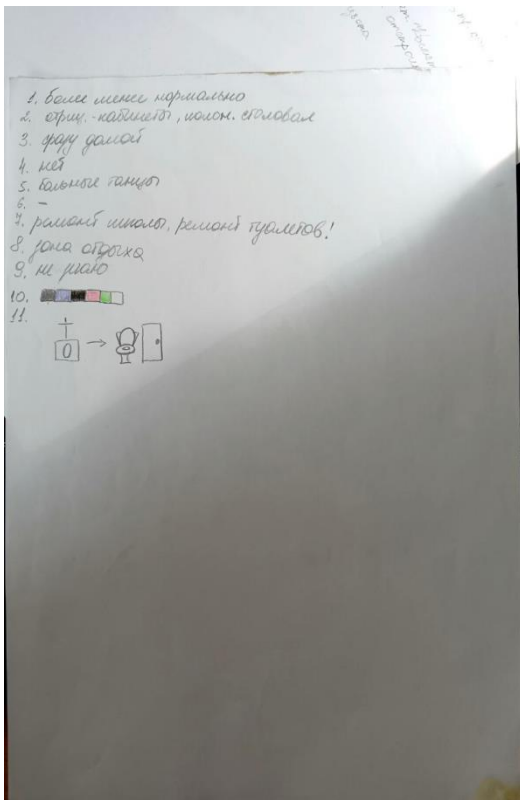 1. более менее нормально
2. отриц. - кабинеты, полож. столовая
3. сразу домой
4. нет
5. бальные танцы
6. -
7. ремонт школы, ремонт туалетов!
8. зона отдыха
9. не знаю
10.
11.
0